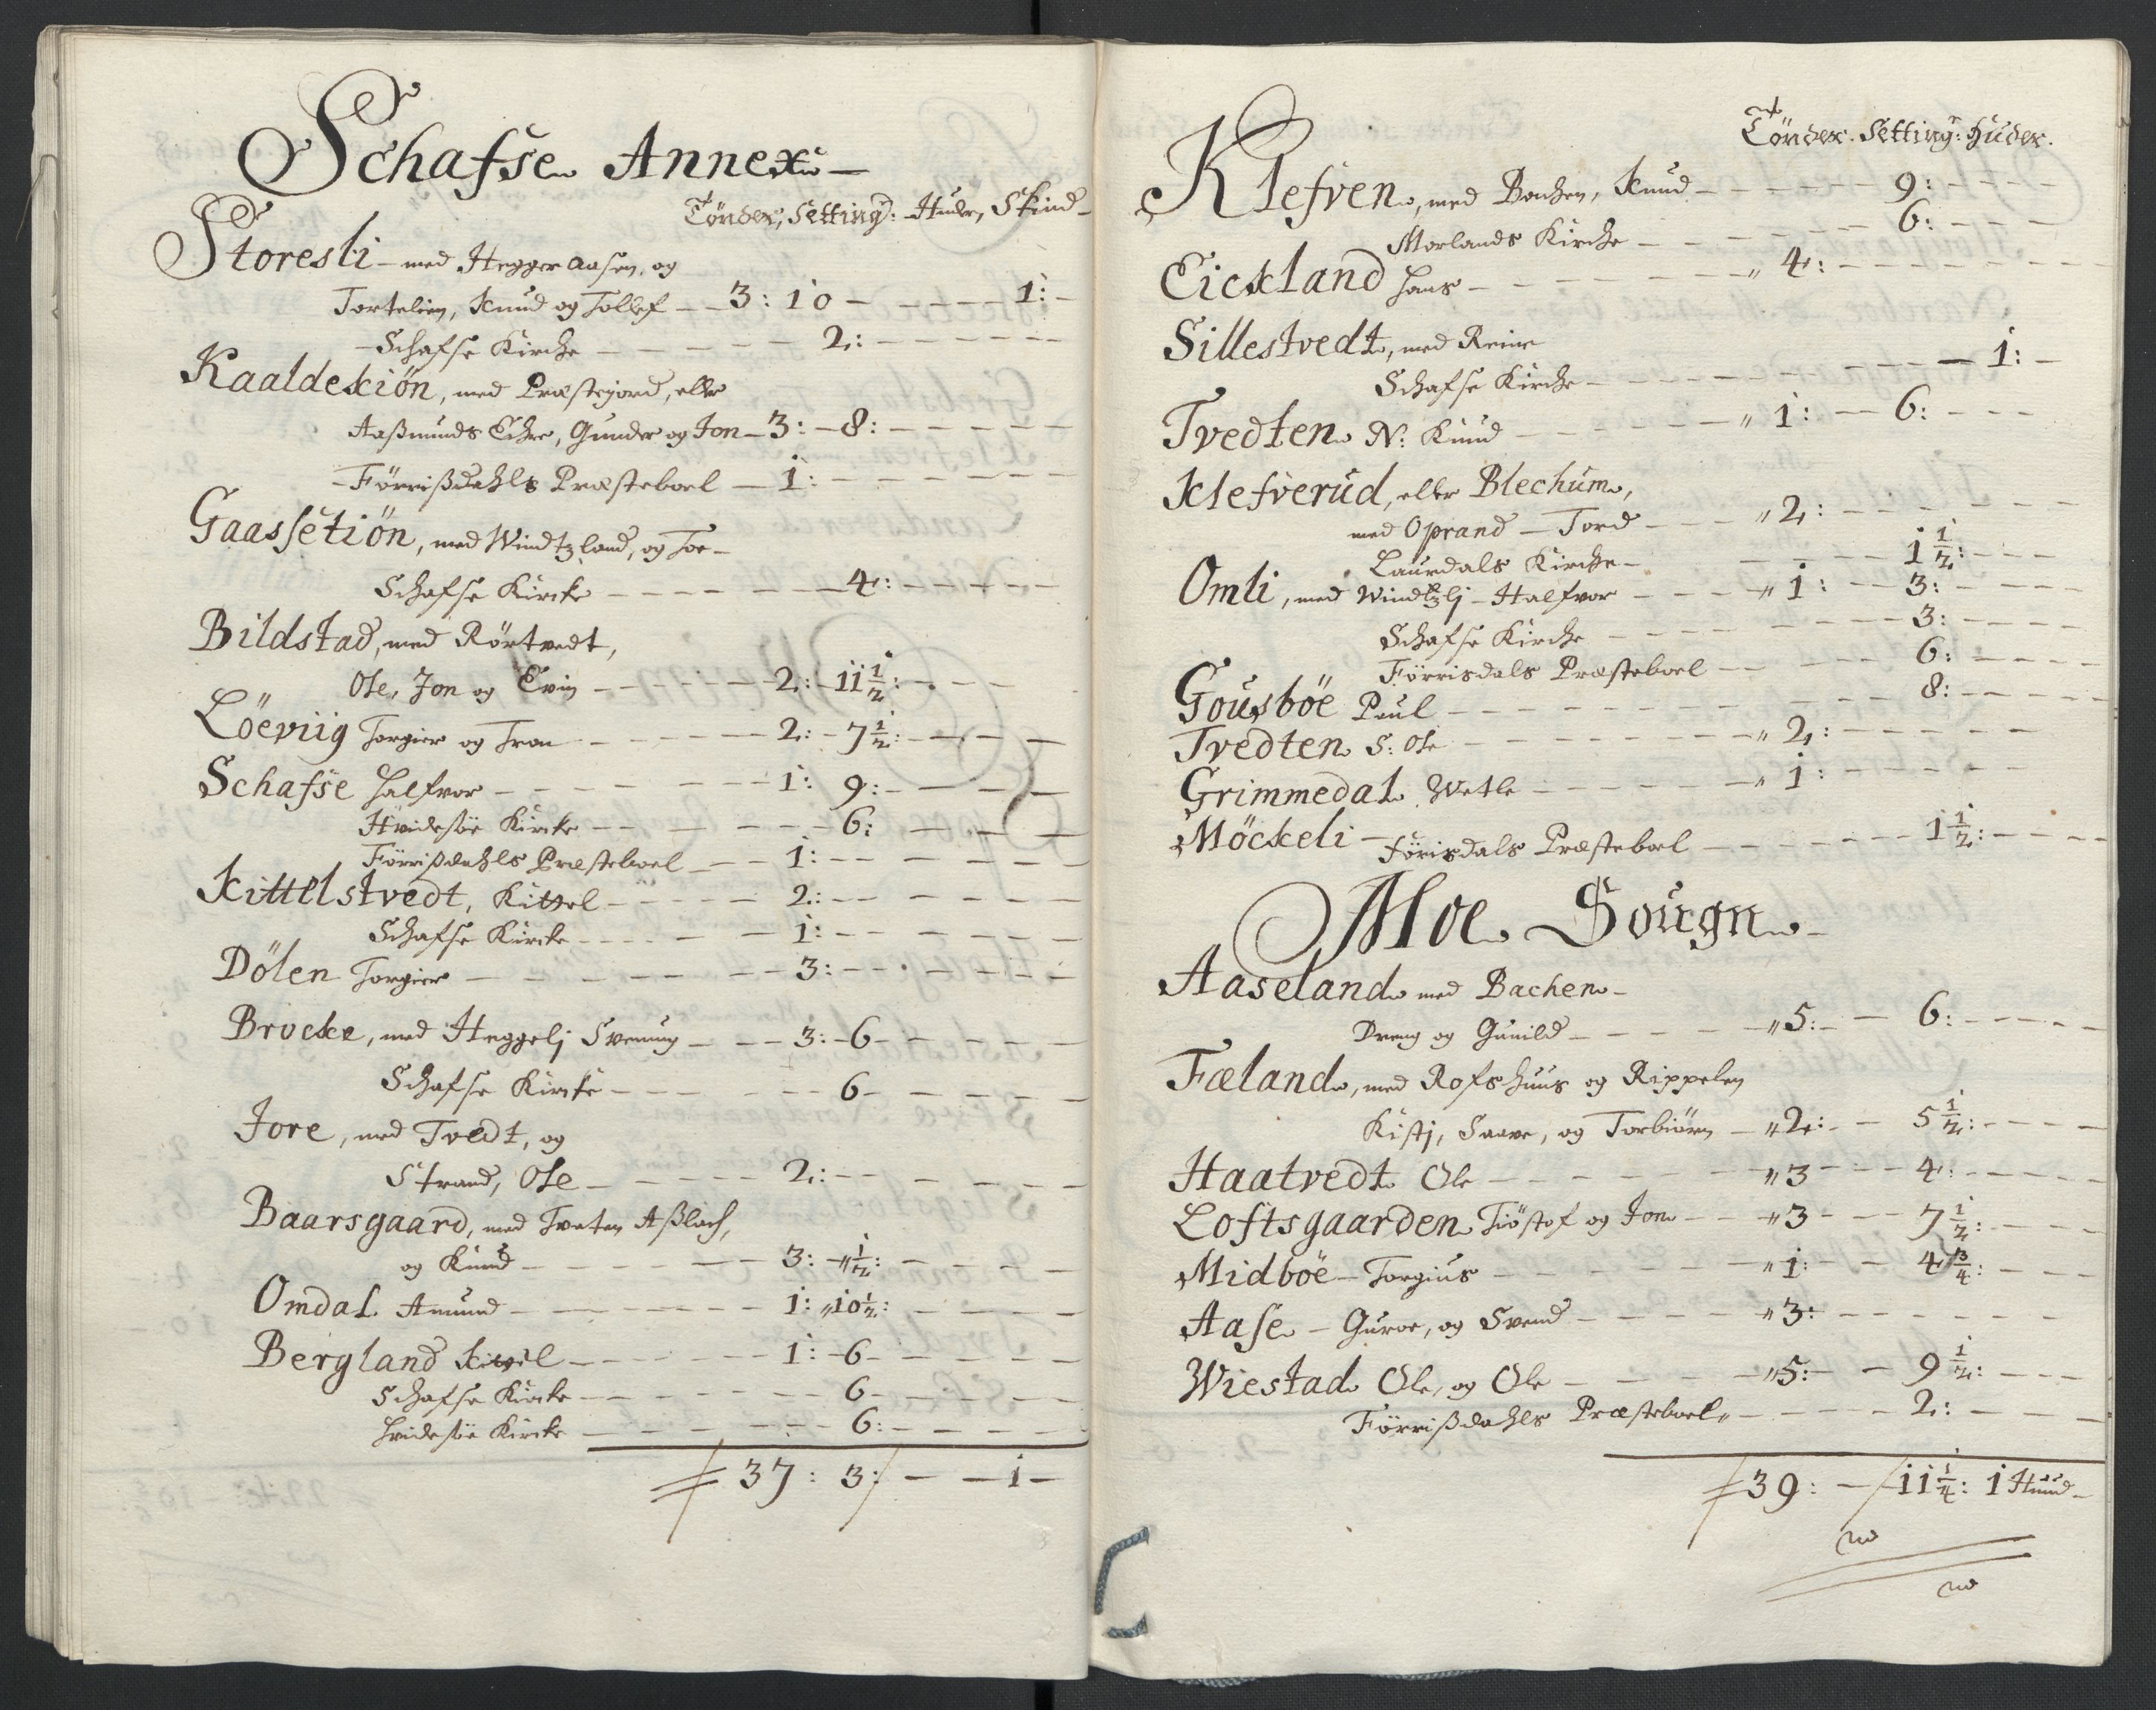 Schafse Annex
Tönder, Setting: Huder, Skind
Storesli med Heggeraasen, og
Tortelien, Knud og Tollef 3: 10 1:
Schafse Kirche 2:
Kaaldekiön, med Præstejord, eller
Aaßmunds Echre, Gunder og Jon 3: 8:
Förrißdahls Præsteboel 1:
Gaassetiön, med Windtzland, og Toe
Schafse Kircke 4:
Bildstad, med Rörtvedt,
Ole, Jon og Evin 2: 11½:
Löeviig Torgier og Tron 2: 7½:
Schafse Halfvor 1: 9:
Hvidesöe Kircke 6:
Förrißdahls Præsteboel 1:
Kittelstvedt, Kittel 2:
Schafse Kircke 1:
Dölen Torgier 3:
Brocke, med Heggelj Svenung 3: 6
Schafse Kircke 6
Jore, med Tvedt, og
Strand, Ole 2:
Baarsgaard, med Tveten Aßlach,
og Knud 3: " ½:
Omdal Amund 1: " 10½:
Bergland Kittil 1: 6
Schafse Kircke 6
Hvidesöe Kircke 6:
37: 3: 1
Tönder. Setting: Huder.
Klefven, med Bachen, Knud 9:
Morlands Kirche 6:
Eickland Hans " 4:
Sillestvedt, med Reine
Schafse Kirche 1:
Tvedten N: Knud " 1: 6:
Klefverud, eller Blechum,
med Oprand Tord " 2:
Laurdals Kirche 1½:
Omli, med Windtzlj Halfvor " 1: 3:
Schafse Kirche 3:
Förrisdals Præsteboel 6:
Gousböe Paul 8:
Tvedten S: Ole " 2:
Grimmedal Wetle " 1:
Möckeli Förisdals Præsteboel 1½:
Moe Sougn
Aaseland med Bachen
Dreng og Gunild " 5: 6:
Fæland, med Rofshuus og Rippelen
Kistj, Saave, og Torbiörn " 2: 5½:
Haatvedt Ole " 3 4:
Loftsgaarden Tiöstof og Jon " 3 7½:
Midböe Torgius " 1: 4¾:
Aase Guroe, og Svend " 3:
Wiestad Ole, og Ole " 5: 9½:
Förrißdahls Præsteboel 2:
39: 11¼: 1 Huud